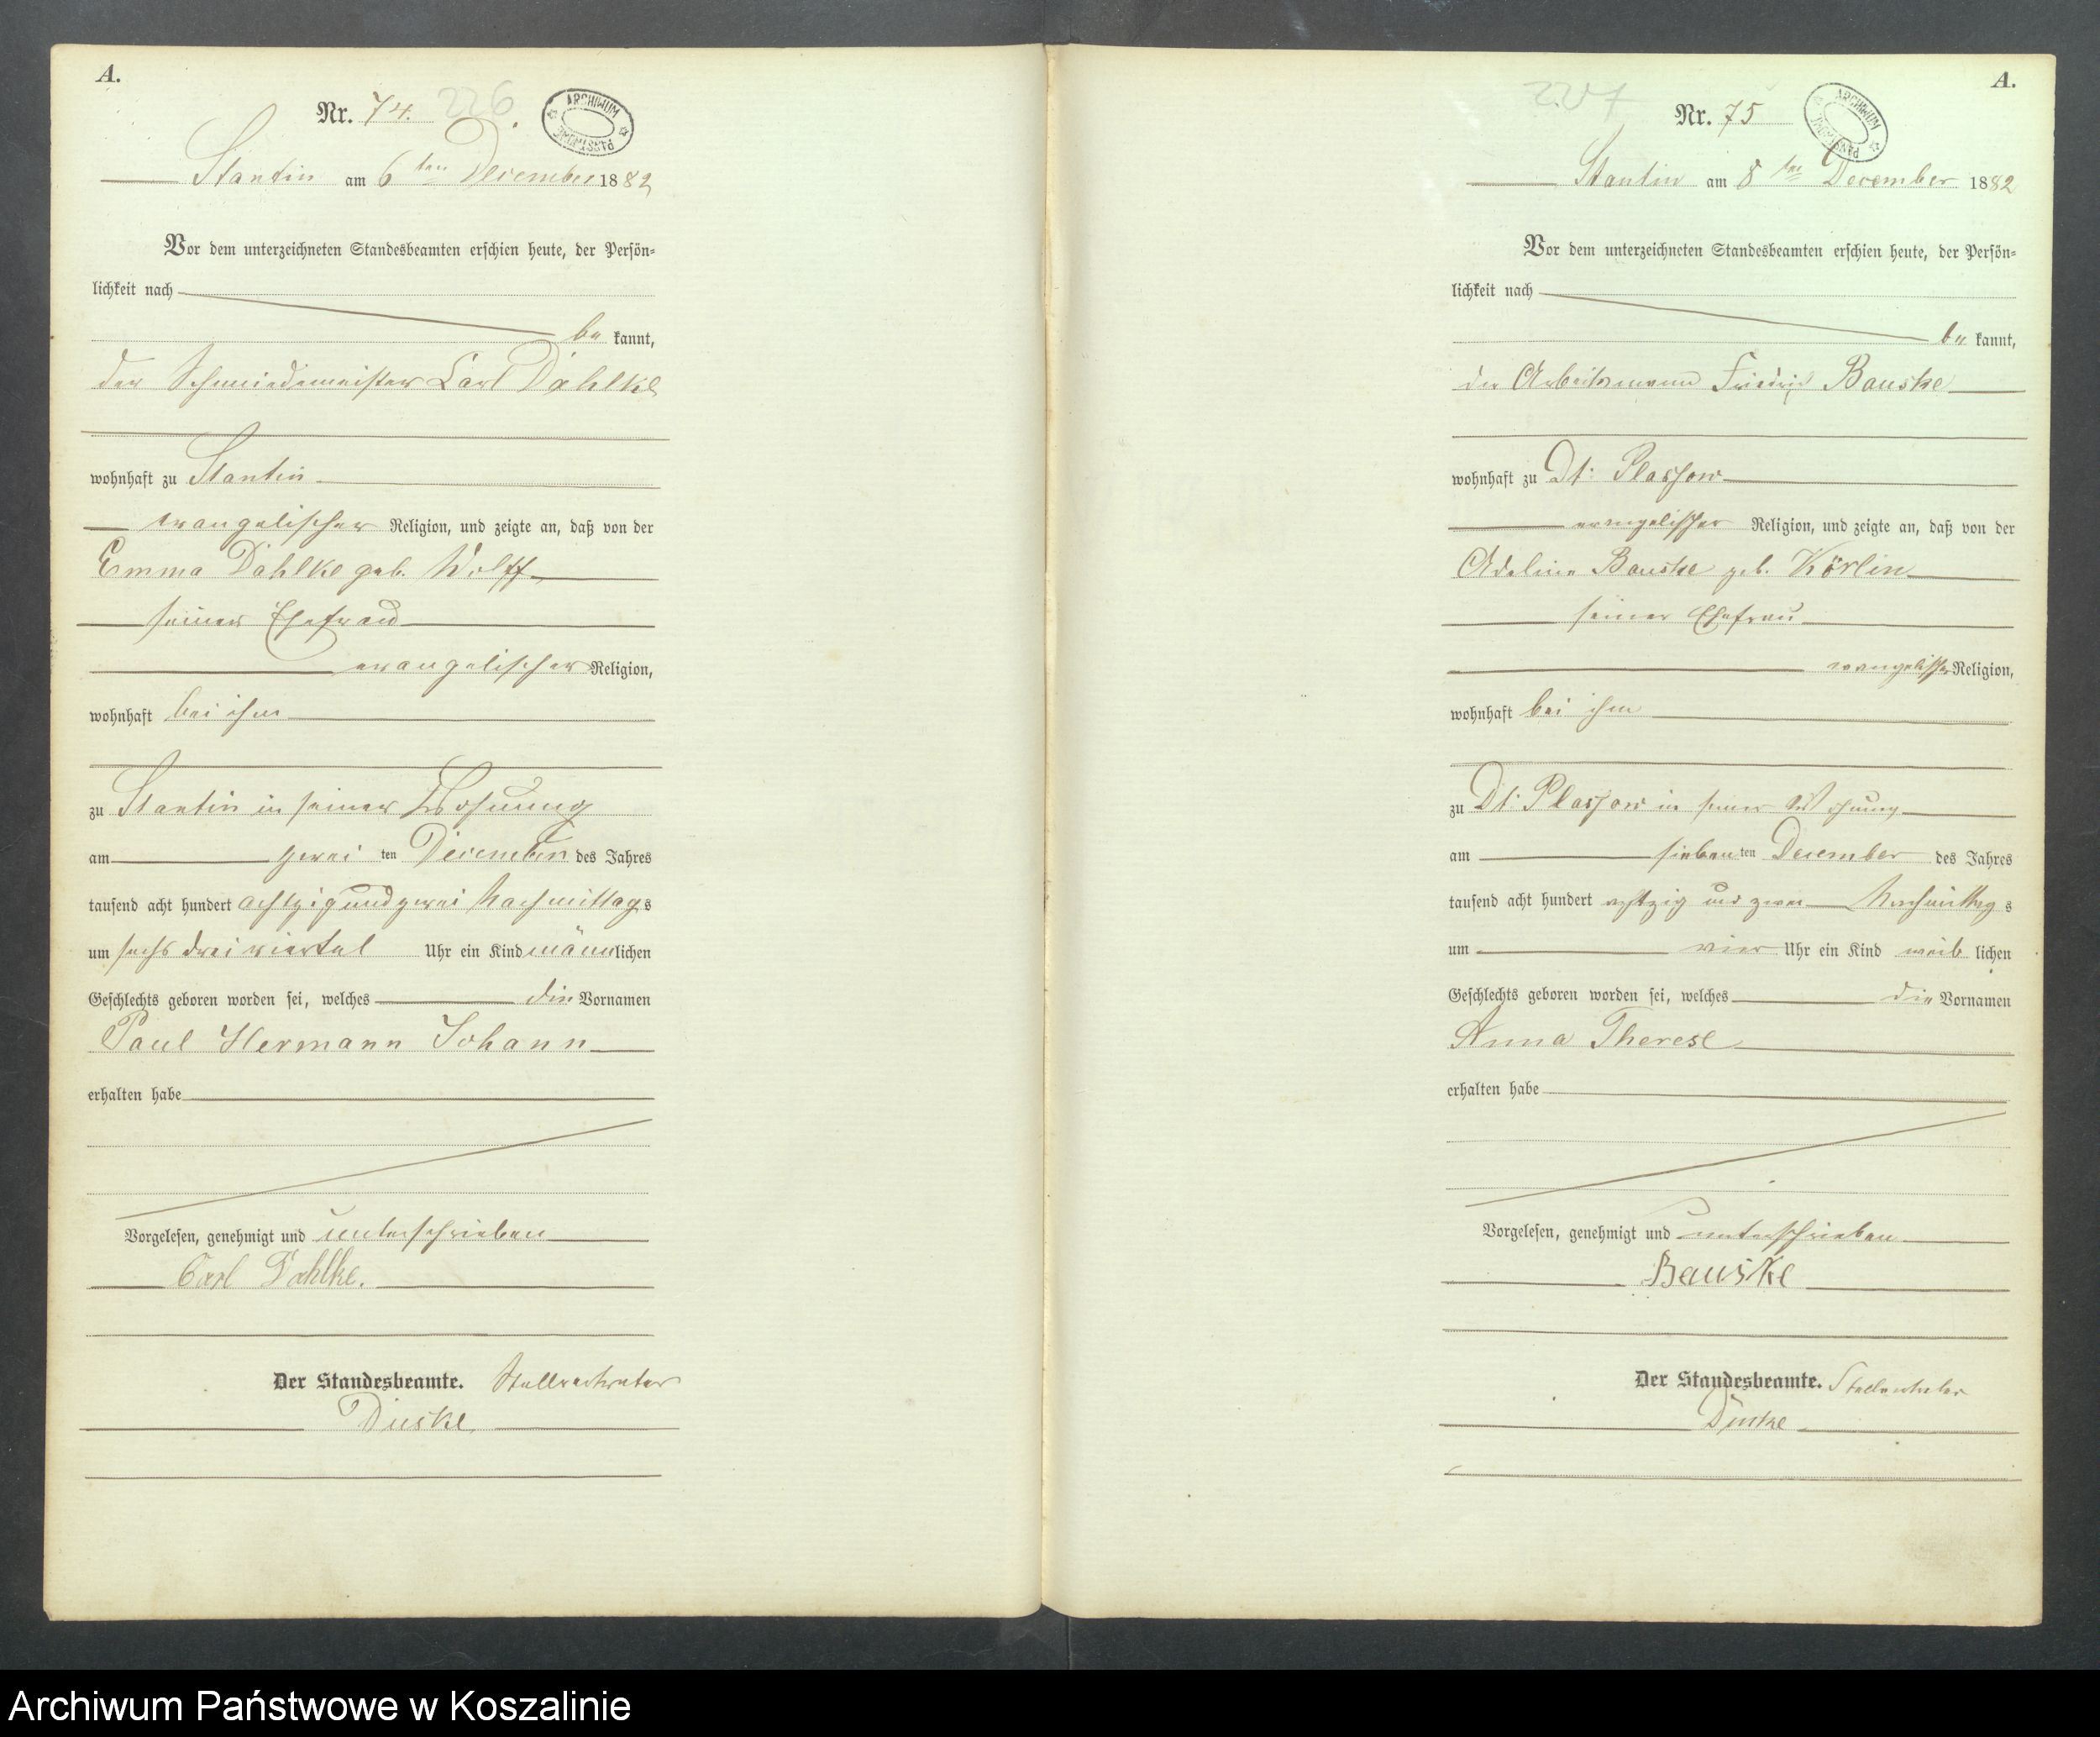 A.
Nr. 74. 226
ARCHIWUM PAŃSTWOWE
Stantin am 6 ten December 1882
Vor dem unterzeichneten Standesbeamten erschien heute, der Persön-
lichkeit nach
be kannt,
der Schmiedemeister Carl Dahlke
wohnhaft zu Stantin
evangelischer Religion, und zeigte an, daß von der
Emma Dahlke geb. Wolff
seiner Ehefrau
evangelischer Religion,
wohnhaft bei ihm
zu Stantin in seiner Wohnung
am zwei ten December des Jahres
tausend acht hundert achtzig und zwei Nachmittags
um sechs dreiviertel Uhr ein Kind männlichen
Geschlechts geboren worden sei, welches die Vornamen
Paul Hermann Johann
erhalten habe
Vorgelesen, genehmigt und unterschrieben
Carl Dahlke.
Der Standesbeamte. Stellvertreter
A.
227
Nr. 75
ARCHIWUM PAŃSTWOWE
Stantin am 8 ten December 1882
Vor dem unterzeichneten Standesbeamten erschien heute, der Persön-
lichkeit nach
be kannt,
der Arbeitsmann Friedrich Bauske
wohnhaft zu Dt: Plassow
evangelischer Religion, und zeigte an, daß von der
Adeline Bauske geb. Körlin
seiner Ehefrau
evangelischer Religion,
wohnhaft bei ihm
zu Dt: Plassow in seiner Wohnung
am sieben ten December des Jahres
tausend acht hundert achtzig und zwei Nachmittag s
um vier Uhr ein Kind weib lichen
Geschlechts geboren worden sei, welches die Vornamen
Anna Therese
erhalten habe
Vorgelesen, genehmigt und unterschrieben
Bauske
Der Standesbeamte. Stellvertreter
Archiwum Państwowe w Koszalinie